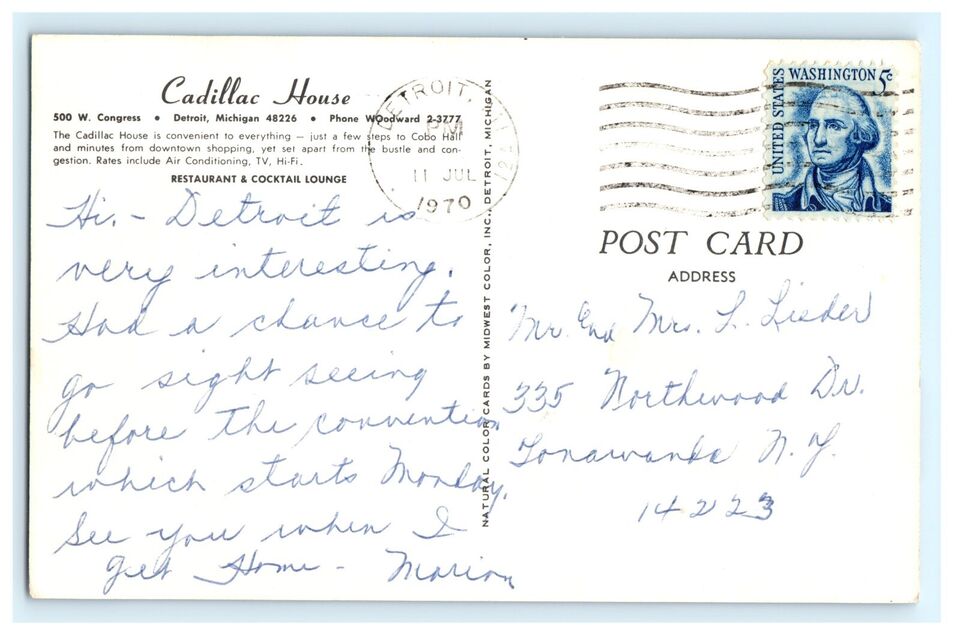 Cadillac House
500 W. Congress • Detroit, Michigan 48226 • Phone WOodward 2-3777
The Cadillac House is convenient to everything — just a few steps to Cobo Hall
and minutes from downtown shopping, yet set apart from the bustle and con-
gestion. Rates include Air Conditioning, TV, Hi-Fi.
RESTAURANT & COCKTAIL LOUNGE
DETROIT,
PM
11 JUL
1970
Hi. - Detroit is
very interesting.
Had a chance to
go sight seeing
before the convention
which starts Monday.
See you when I
get Home - Marion
NATURAL COLOR CARDS BY MIDWEST COLOR, INC., DETROIT, MICHIGAN
UNITED STATES
WASHINGTON 5c
POST CARD
ADDRESS
Mr. and Mrs. L.
335 Northwood Dr.
Tonawanda N.Y.
14223